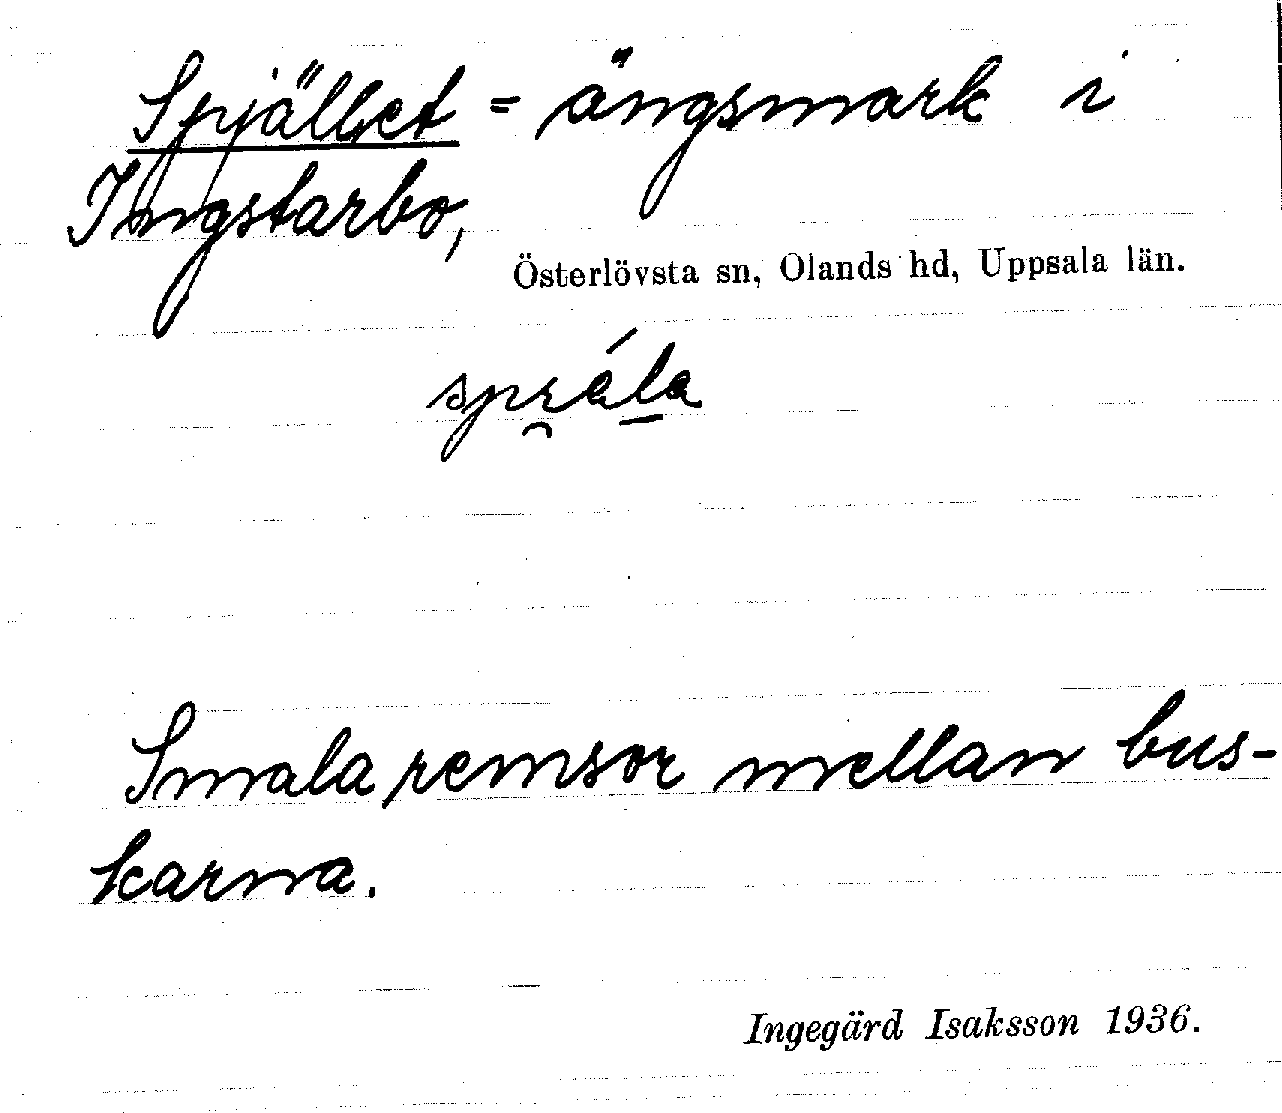 Spjället = ängsmark i
Ingstarbo,
Österlövsta sn, Olands hd, Uppsala län.
Smala remsor mellan bus-
karna.
Ingegärd Isaksson 1936.